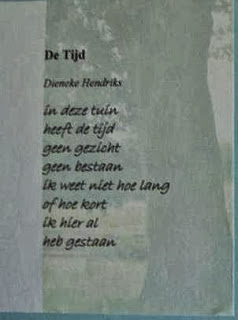 De Tijd
Dieneke Hendriks
in deze tuin
heeft de tijd
geen gezicht
geen bestaan
ik weet niet hoe lang
of hoe kort
ik hier al
heb gestaan